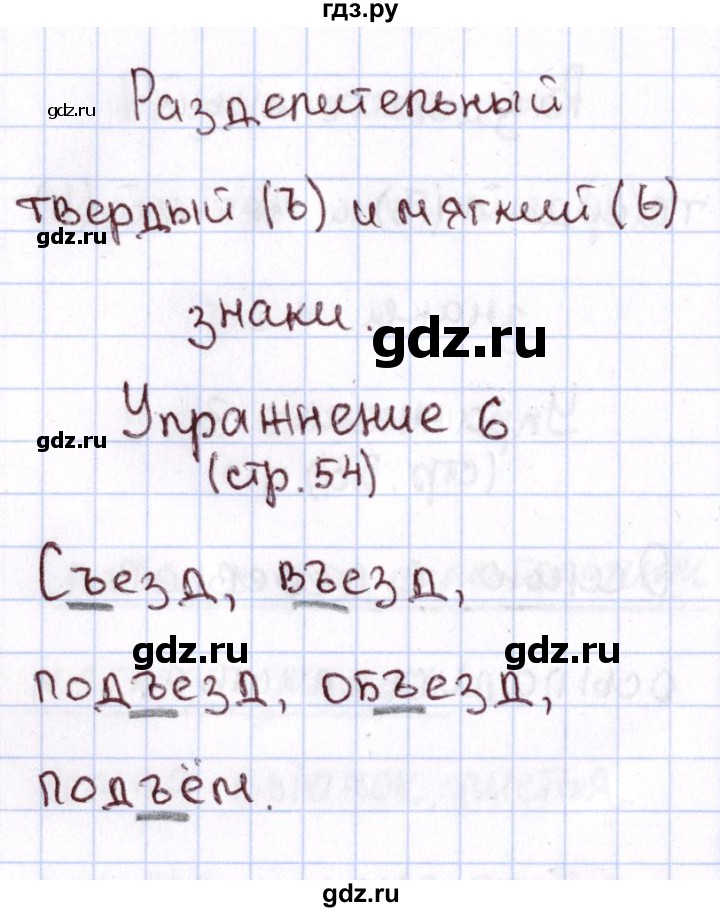 гдз.ру
gdz.ru
Разделительный
твердый (ъ) и мягкий (ь)
gdz.ru
знаки.
gdz.ru
Упражнение 6
gdz.ru
(стр. 54)
Съезд, въезд,
gdz.ru gdz.ru
подъезд, объезд,
подъём.
gdz.ru